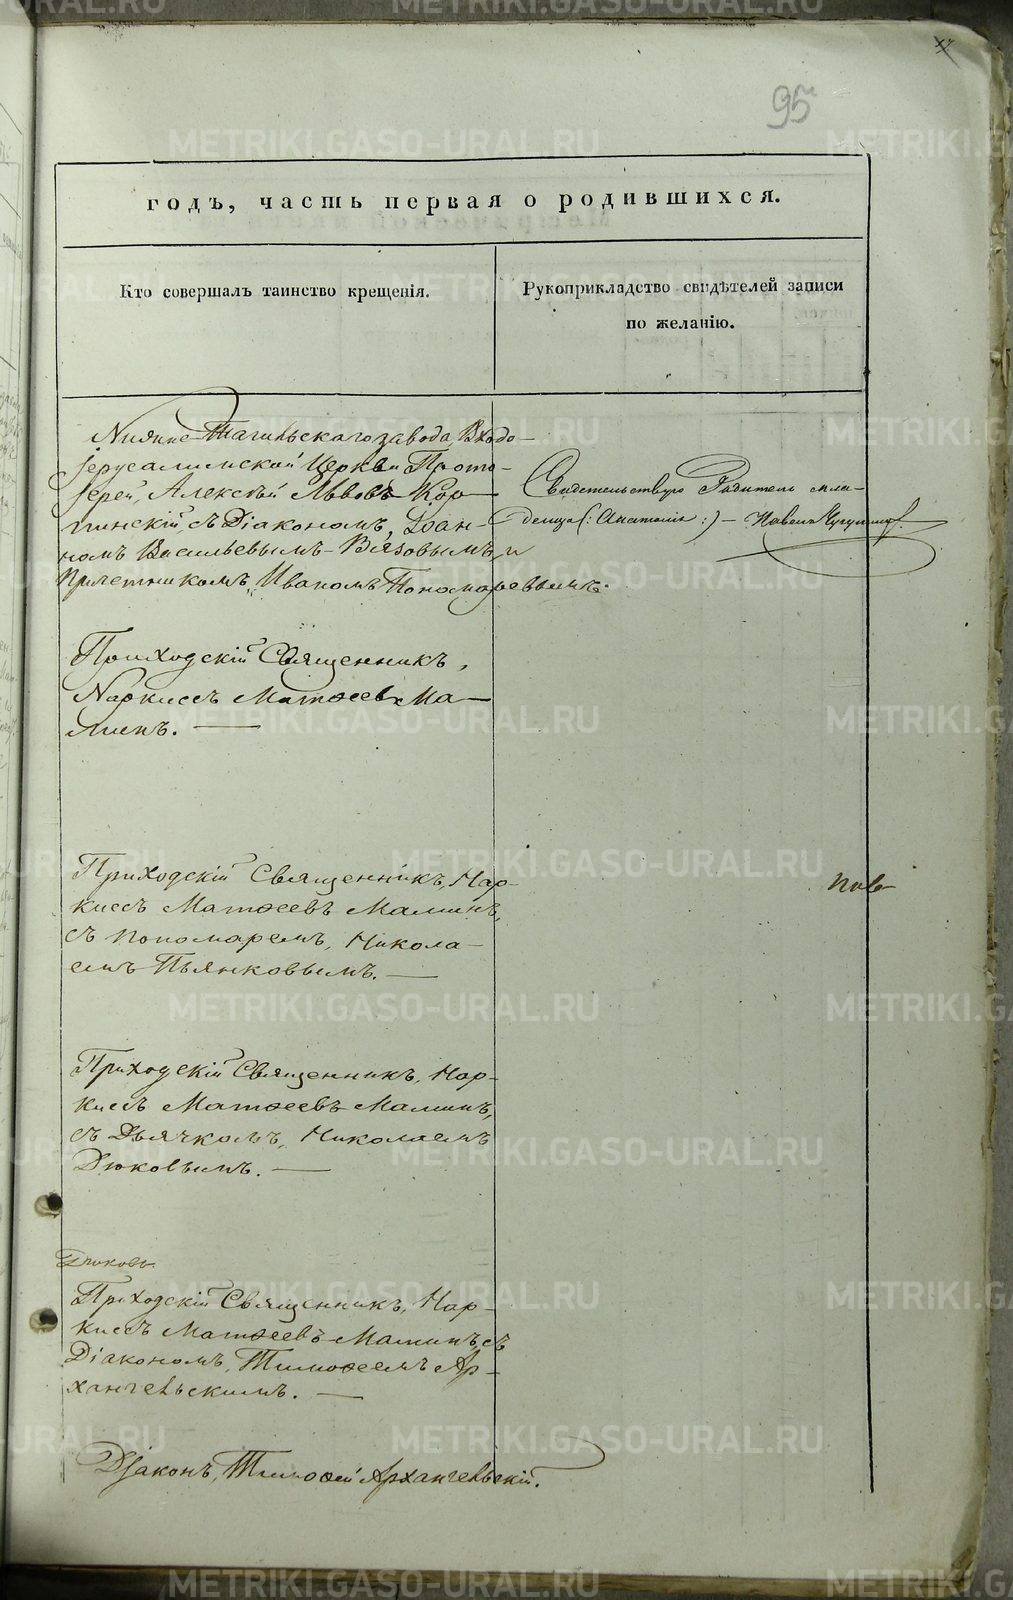 95
годъ, часть первая о родившихся.
Кто совершалъ таинство крещенія.
Рукоприкладство свидѣтелей записи
по желанію.
Нижне Тагильскаго завода, Входо-
іерусалимской Церкви Прото-
іерей, Алексѣй Львовъ Кор-
пинскій, съ Діакономъ, Іоан-
номъ Васильевымъ Вязовымъ, и
Причетникомъ, Иваномъ Пономаревымъ.
Свидетельствую Родитель мла-
денца (: Анатолія :) – Павелъ
Приходскій Священникъ,
Наркиссъ Матѳеевъ Ма-
минъ. —
Приходскій Священникъ, Нар-
киссъ Матѳеевъ Маминъ,
съ пономаремъ, Никола-
емъ Пьянковымъ. —
Приходскій Священникъ, Нар-
киссъ Матѳеевъ Маминъ,
съ Дьячкомъ, Николаемъ
Дюковымъ. —
Дюковъ
Приходскій Священникъ, Нар-
киссъ Матѳеевъ Маминъ, съ
Діакономъ, Тимоѳеемъ Ар-
хангельскимъ. —
Діаконъ, Тимоѳей Архангельскій.
METRIKI.GASO-URAL.RU